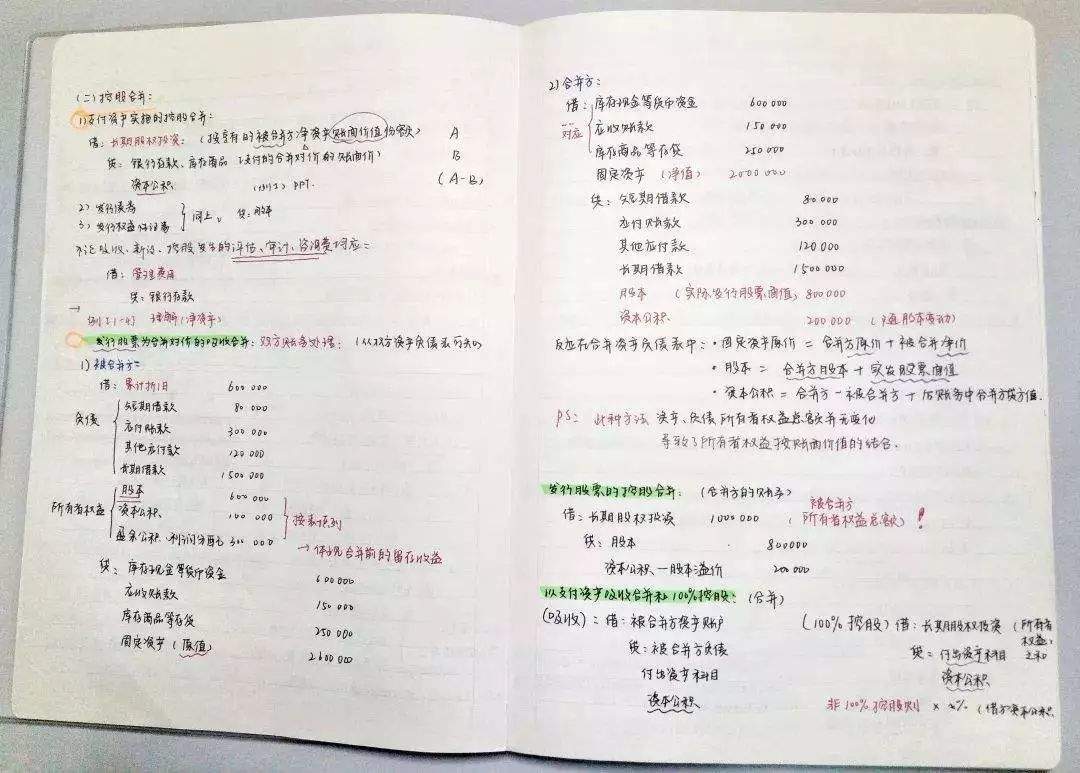 (二)控股合并:
1)支付资产实施的控股合并:
借: 长期股权投资: (按享有的被合并方净资产账面价值份额) A
贷: 银行存款、库存商品 (支付的合并对价的账面价) B
资本公积 PPT. (A-B)
2)发行债券
3)发行权益性证券 } 同上、 贷: 股本
不论吸收、新设、控股发生的评估、审计、咨询费均应:
借: 管理费用
贷: 银行存款
→ 理解(净资产)
发行股票为合并对价的吸收合并: 双方账务处理: (从双方资产负债表可知)
1)被合并方:
借: 累计折旧 600 000
负债
短期借款 80 000
应付账款 300 000
其他应付款 120 000
长期借款 1500 000
所有者权益
股本 600 000
资本公积 100 000
盈余公积、利润分配 300 000
} 按表填列
→体现合并前的留存收益
贷: 库存现金等货币资金 600 000
应收账款 150 000
库存商品等存货 250 000
固定资产(原值) 2600 000
2)合并方:
借: 库存现金等货币资金 600 000
对应
应收账款 150 000
库存商品等存货 250 000
固定资产 (净值) 2000 000
贷: 短期借款 80 000
应付账款 300 000
其他应付款 120 000
长期借款 1500 000
股本 (实际发行股票面值) 800 000
资本公积 200 000 (股本变动)
反应在合并资产负债表中: · 固定资产原价 = 合并方原价 + 被合并净价
· 股本 = 合并方股本 + 实发股票面值
· 资本公积 = 合并方 - 被合并方 + 账务中合并方贷方值.
PS: 此种方法 资产、负债 所有者权益总额并无变化
导致了所有者权益按账面价值的结合.
发行股票的控股合并: (合并方的账务)
借: 长期股权投资 1000 000 (被合并方所有者权益总额) !
贷: 股本 800000
资本公积—股本溢价 200 000
以支付资产吸收合并和100%控股: (合并)
(吸收): 借: 被合并方资产账户
贷: 被合并方负债
付出资产科目
资本公积
(100%控股) 借: 长期股权投资 (所有者权益之和)
贷: 付出资产科目
资本公积
非100%控股则 × x% (借方资本公积